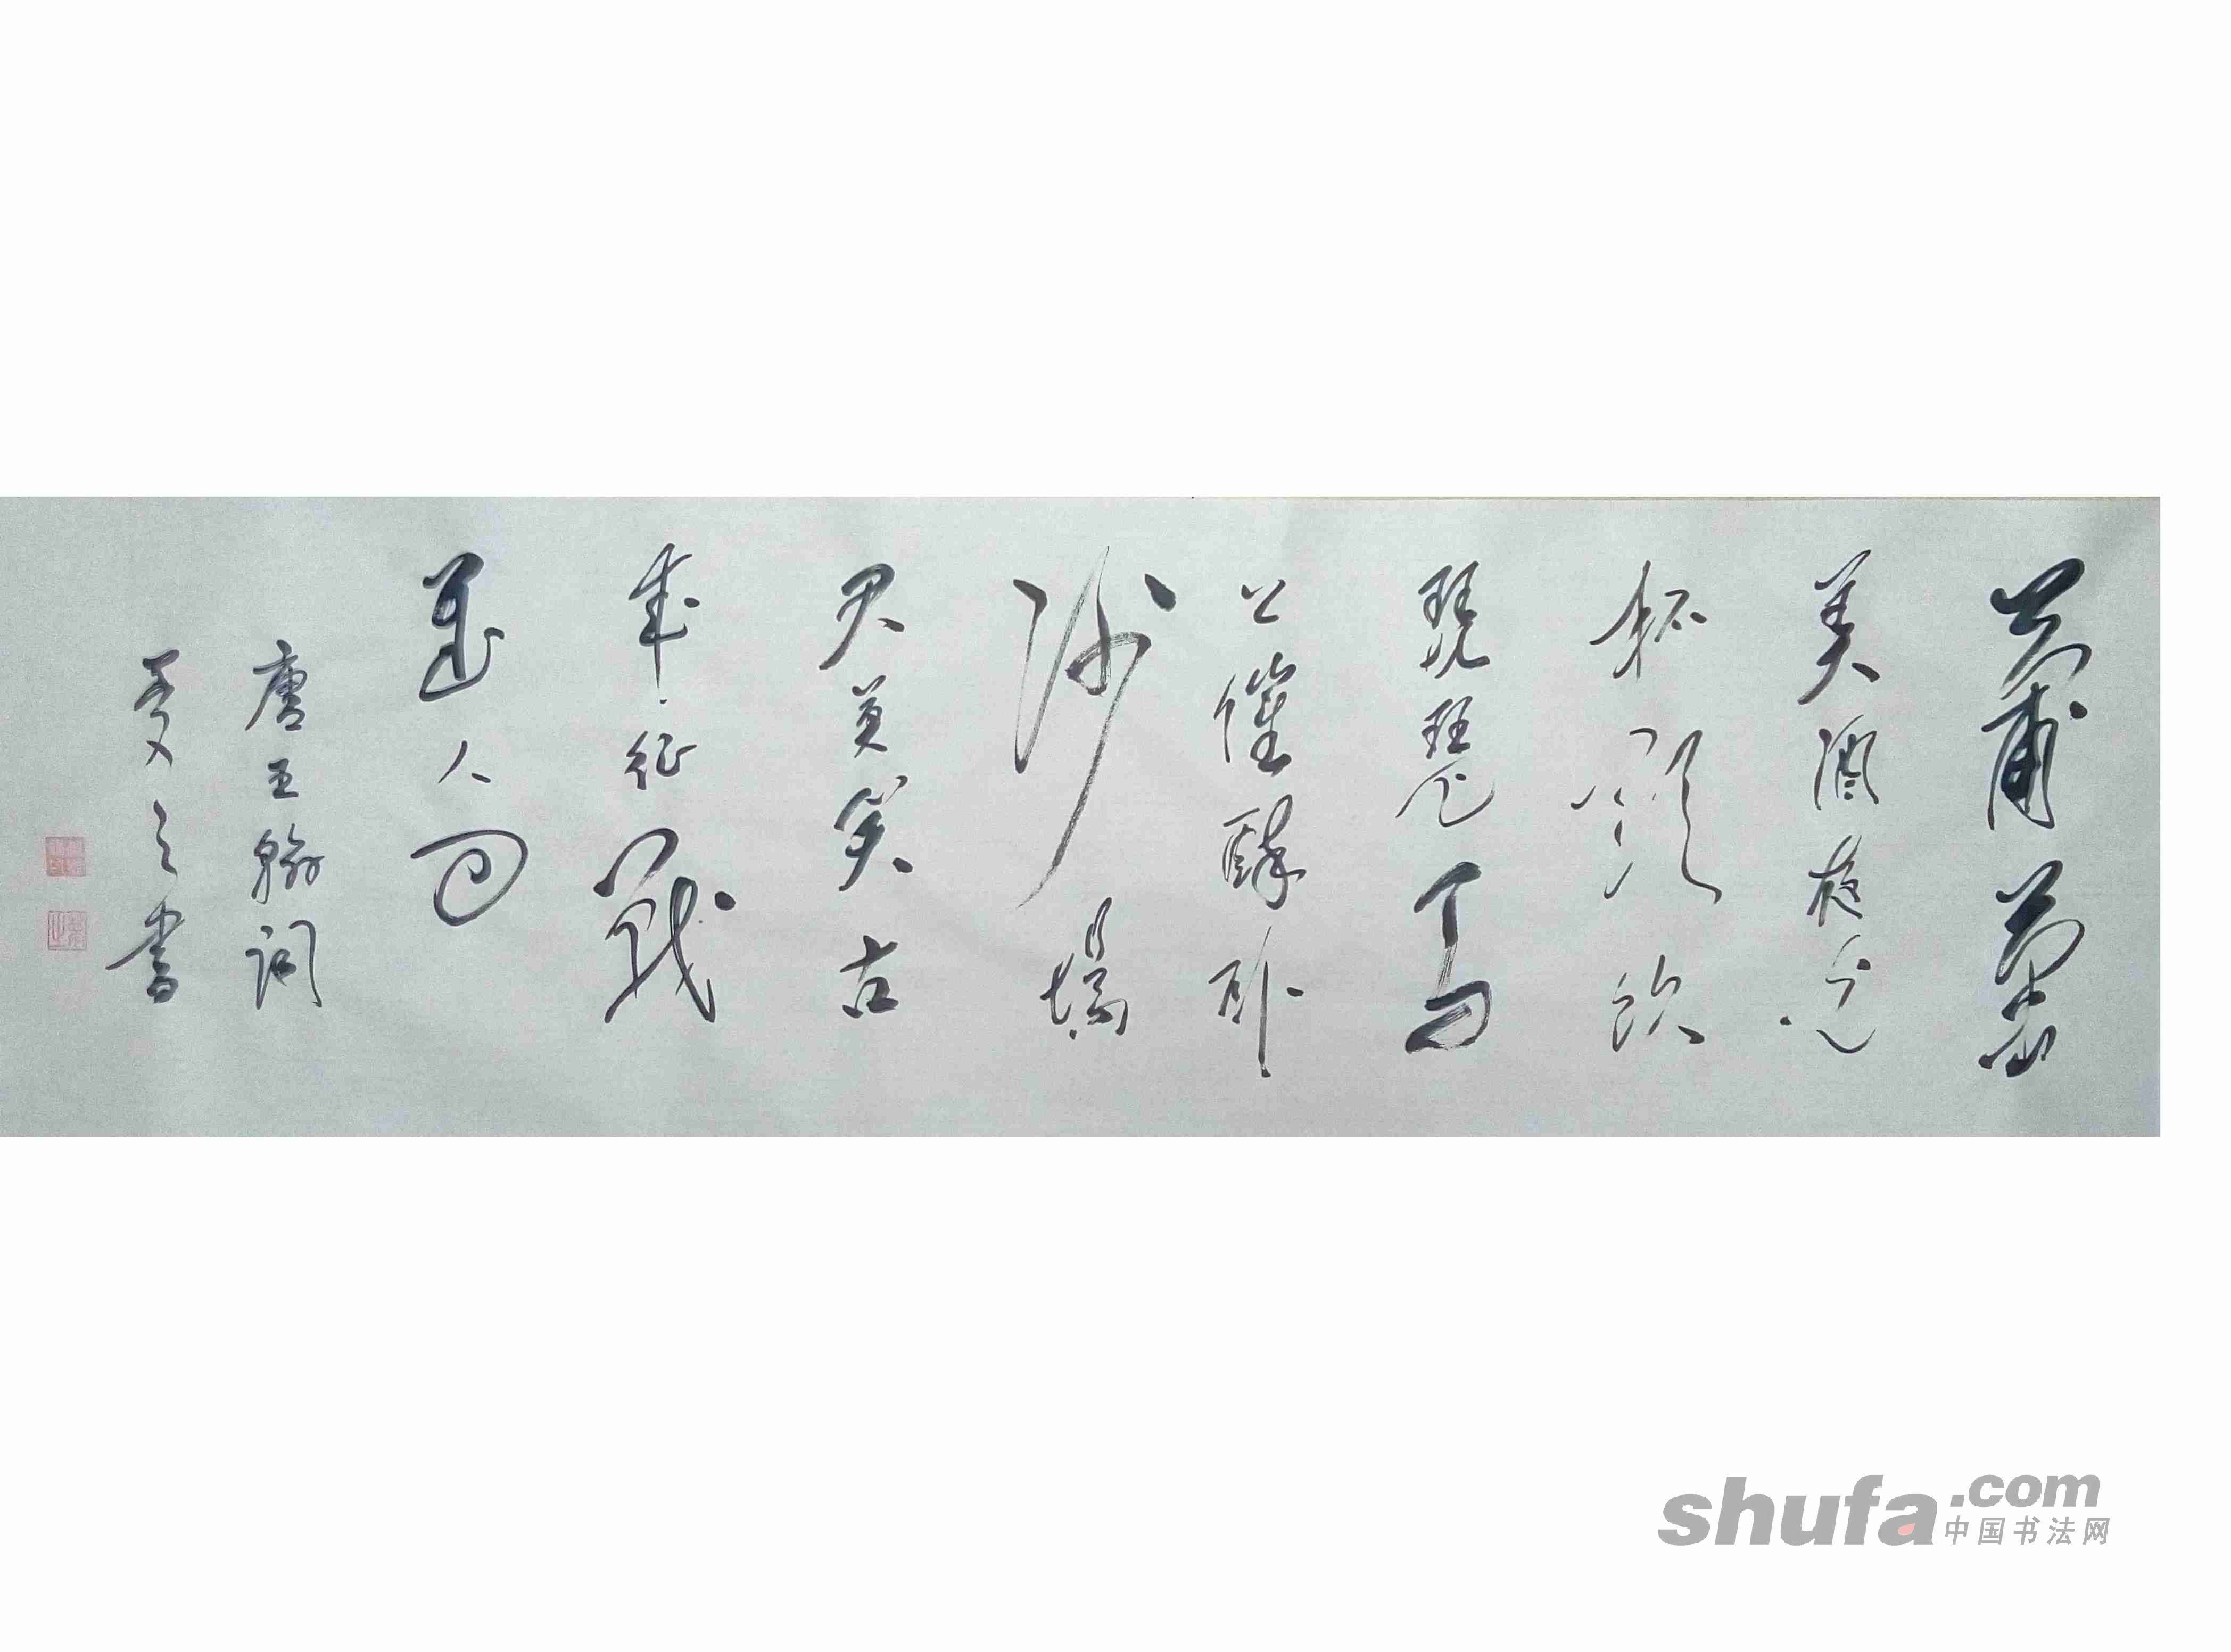 葡萄
美酒夜光
杯欲飲
琵琶馬
上催醉卧
沙場
君莫笑古
来征戰
幾人回
唐王翰詞
之書
shufa.com
中国书法网